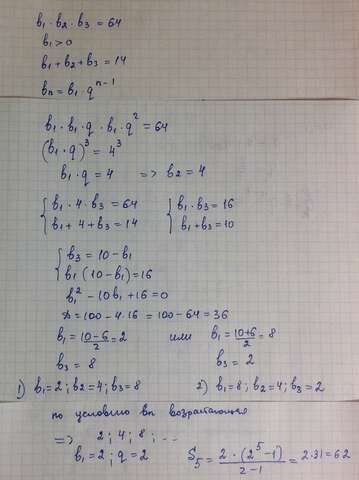 b₁·b₂·b₃ = 64
b₁ > 0
b₁ + b₂ + b₃ = 14
bn = b₁ · q^(n-1)
b₁ · b₁ · q · b₁ · q² = 64
(b₁ · q)³ = 4³
b₁ · q = 4 => b₂ = 4
{ b₁ · 4 · b₃ = 64 { b₁ · b₃ = 16
b₁ + 4 + b₃ = 14 b₁ + b₃ = 10
{ b₃ = 10 - b₁
b₁ (10 - b₁) = 16
b₁² - 10b₁ + 16 = 0
D = 100 - 4·16 = 100 - 64 = 36
b₁ = (10-6)/2 = 2 или b₁ = (10+6)/2 = 8
b₃ = 8 b₃ = 2
1) b₁ = 2 ; b₂ = 4 ; b₃ = 8 2) b₁ = 8 ; b₂ = 4 ; b₃ = 2
по условию bn возрастающая
=> 2 ; 4 ; 8 ; ...
b₁ = 2 ; q = 2 S₅ = 2 · (2⁵ - 1)/(2 - 1) = 2·31 = 62